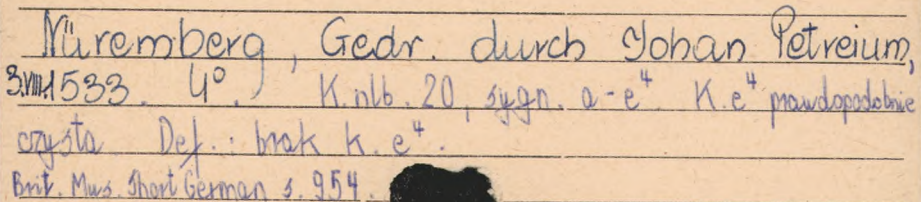 Nüremberg, Gedr. durch Johan Petreium,
3.VIII 1533. 4°. K. nlb. 20, sygn. a-e⁴. K. e⁴ prawdopodobnie
czysta Def.: brak k. e⁴.
Brit. Mus. Short German s. 954.